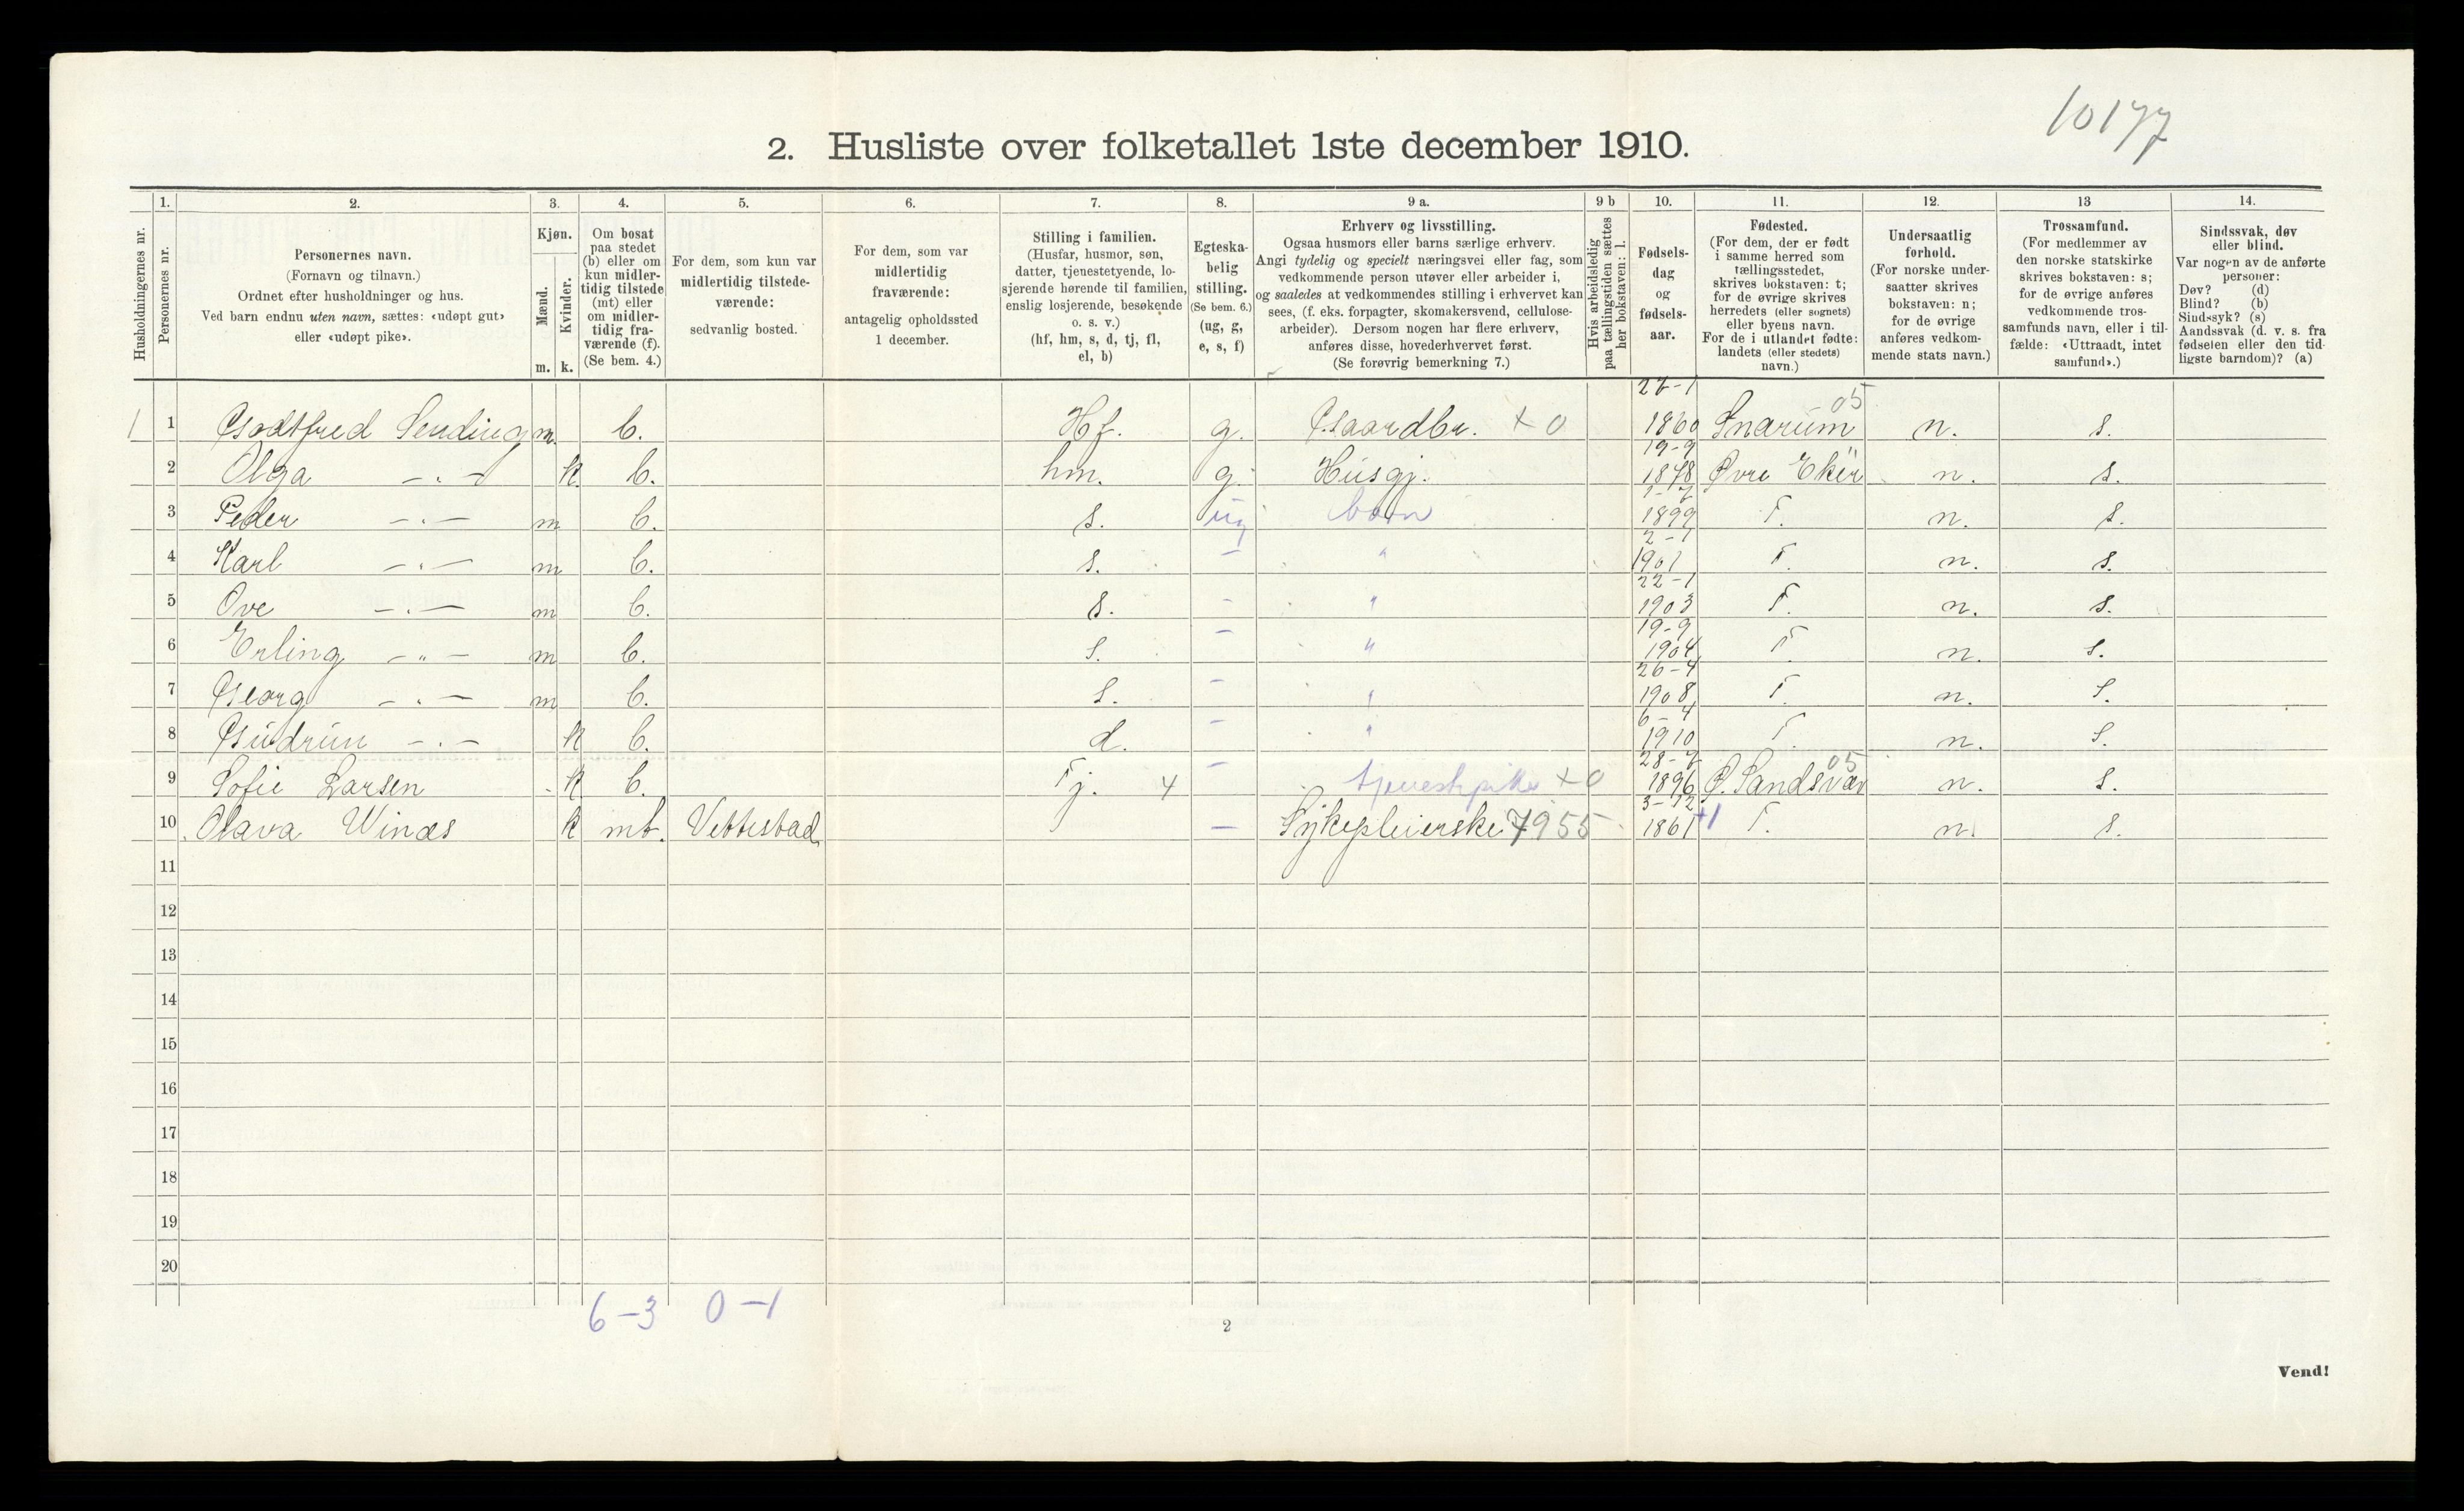 10177
2. Husliste over folketallet 1ste december 1910.
Husholdningernes nr.
1.
Personernes nr.
2.
Personernes navn.
(Fornavn og tilnavn.)
Ordnet efter husholdninger og hus.
Ved barn endnu uten navn, sættes: «udøpt gut»
eller «udøpt pike».
3.
Kjøn.
Mænd.
Kvinder.
m. k.
4.
Om bosat
paa stedet
(b) eller om
kun midler-
tidig tilstede
(mt) eller
om midler-
tidig fra-
værende (f).
(Se bem. 4.)
5.
For dem, som kun var
midlertidig tilstede-
værende:
sedvanlig bosted.
6.
For dem, som var
midlertidig
fraværende:
antagelig opholdssted
1 december.
7.
Stilling i familien.
(Husfar, husmor, søn,
datter, tjenestetyende, lo-
sjerende hørende til familien,
enslig losjerende, besøkende
o. s. v.)
(hf, hm, s, d, tj, fl,
el, b)
8.
Egteska-
belig
stilling.
(Se bem. 6.)
(ug, g,
e, s, f)
9 a.
Erhverv og livsstilling.
Ogsaa husmors eller barns særlige erhverv.
Angi tydelig og specielt næringsvei eller fag, som
vedkommende person utøver eller arbeider i,
og saaledes at vedkommendes stilling i erhvervet kan
sees, (f. eks. forpagter, skomakersvend, cellulose-
arbeider). Dersom nogen har flere erhverv,
anføres disse, hovederhvervet først.
(Se forøvrig bemerkning 7.)
9 b
Hvis arbeidsledig
paa tællingstiden sættes
her bokstaven: l.
10.
Fødsels-
dag
og
fødsels-
aar.
11.
Fødested.
(For dem, der er født
i samme herred som
tællingsstedet,
skrives bokstaven: t;
for de øvrige skrives
herredets (eller sognets)
eller byens navn.
For de i utlandet fødte:
landets (eller stedets)
navn.)
12.
Undersaatlig
forhold.
(For norske under-
saatter skrives
bokstaven: n;
for de øvrige
anføres vedkom-
mende stats navn.)
13
Trossamfund.
(For medlemmer av
den norske statskirke
skrives bokstaven: s;
for de øvrige anføres
vedkommende tros-
samfunds navn, eller i til-
fælde: «Uttraadt, intet
samfund».)
14.
Sindssvak, døv
eller blind.
Var nogen av de anførte
personer:
Døv? (d)
Blind? (b)
Sindssyk? (s)
Aandssvak (d. v. s. fra
fødselen eller den tid-
ligste barndom)? (a)
1 1 Godtfred Sending m. b. Hf. g. Gaardbr. x 0 1860 Snarum 05 n. s.
2 Olga -.- k. b. hm. g. Husgj. 19-9 1878 Øvre Eker n. s.
3 Peder -.- m b. s. ug barn 1899 T. n. s.
4 Karl -.- m b. s. - " 2-1 1901 T. n. s.
5 Ove -.- m b. s. - " 22-1 1903 T. n. s.
6 Erling -"- m b. s. - " 19-9 1904 T. n. s.
7 Georg -.- m b. s. - " 26-4 1908 T. n. s.
8 Gudrun -.- k b. d. - " 6-4 1910 T. n. s.
9 Sofie Larsen k b. Tj. 4 - tjenestepike x 0 28-7 1896 Ø. Sandsvær 05 n. s.
10 Olava Winæs k mt. Vettestad - Sykepleierske 7955 3-12 1861 +1 T. n. s.
11
12
13
14
15
16
17
18
19
20
6-3 0-1
2
Vend!